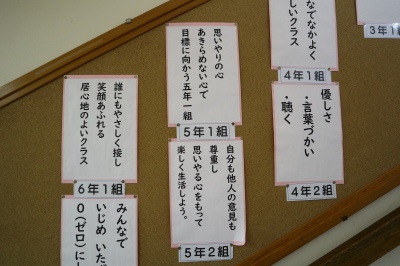 なでなかよく
しいクラス
4年1組
3年1
優しさ
・言葉づかい
・聴く
4年2組
思いやりの心
あきらめない心で
目標に向かう五年一組
5年1組
自分も他人の意見も
尊重し
思いやる心をもって
楽しく生活しよう。
5年2組
誰にもやさしく接し
笑顔あふれる
居心地のよいクラス
6年1組
みんなで
いじめ いたず
0(ゼロ)に